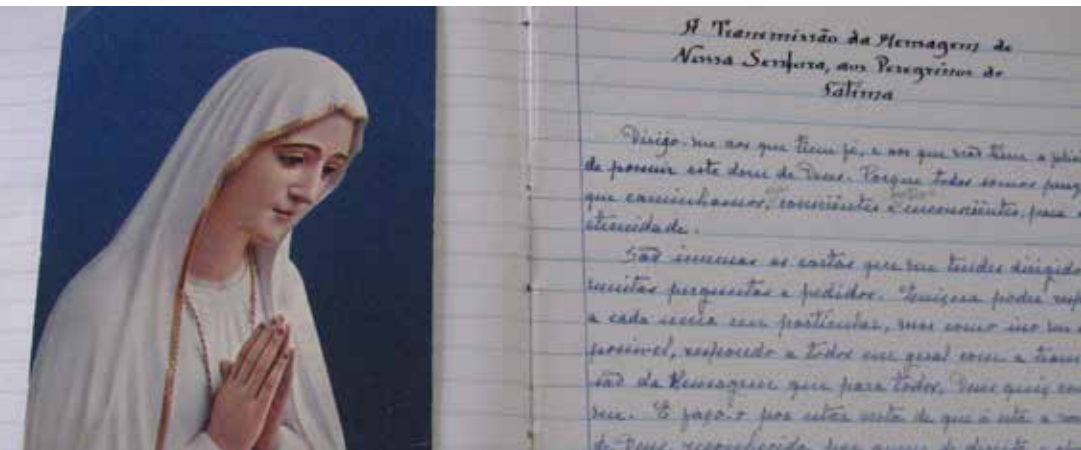 A Transmissão da Mensagem de
Nossa Senhora, aos Peregrinos de
Fátima
Dirijo-me aos que tiem fé, e aos que não tiem a
de possuir este dom de Deus. Porque todos somos
que caminhamos, conscientes e inconscientes, para a
eternidade.
São imensas as cartas que me tendes dirigido
muitas perguntas e pedidos. Quisera poder
a cada uma em particular, mas como isso
possivel, respondo a todos em geral com a
são da Mensagem que para todos, Deus quis
me. E faço-o por estar certa de que é esta a
de Deus, reconhecida por quem de direito